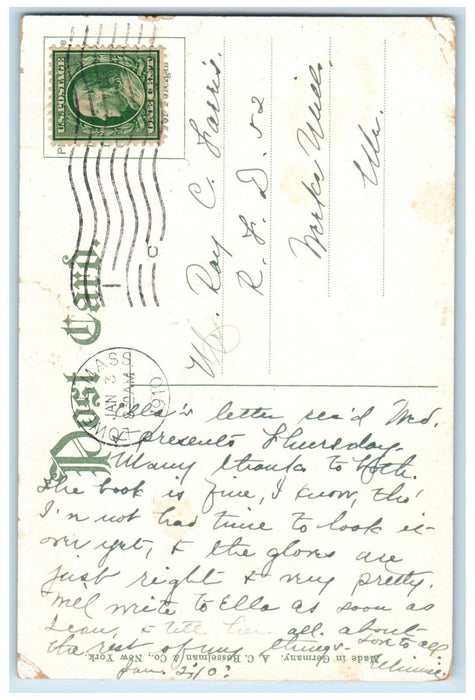 U.S. POSTAGE
ONE CENT
Post Card.
LOWELL MASS
JAN 3
1910
C
1
Mr. Roy C. Farris.
R. F. D. 52
Works Mills,
Me.
Ella's letter rec'd Wed.
& presents Thursday.
Many thanks to both.
The book is fine, I know, tho'
I'm not had time to look it
over yet, & the gloves are
just right & very pretty.
Will write to Ella as soon as
I can, & tell her all about
the rest of my things. Love to all
Minnie
Jan. 2, '10.
Made in Germany. A. C. Bosselman & Co., New York.